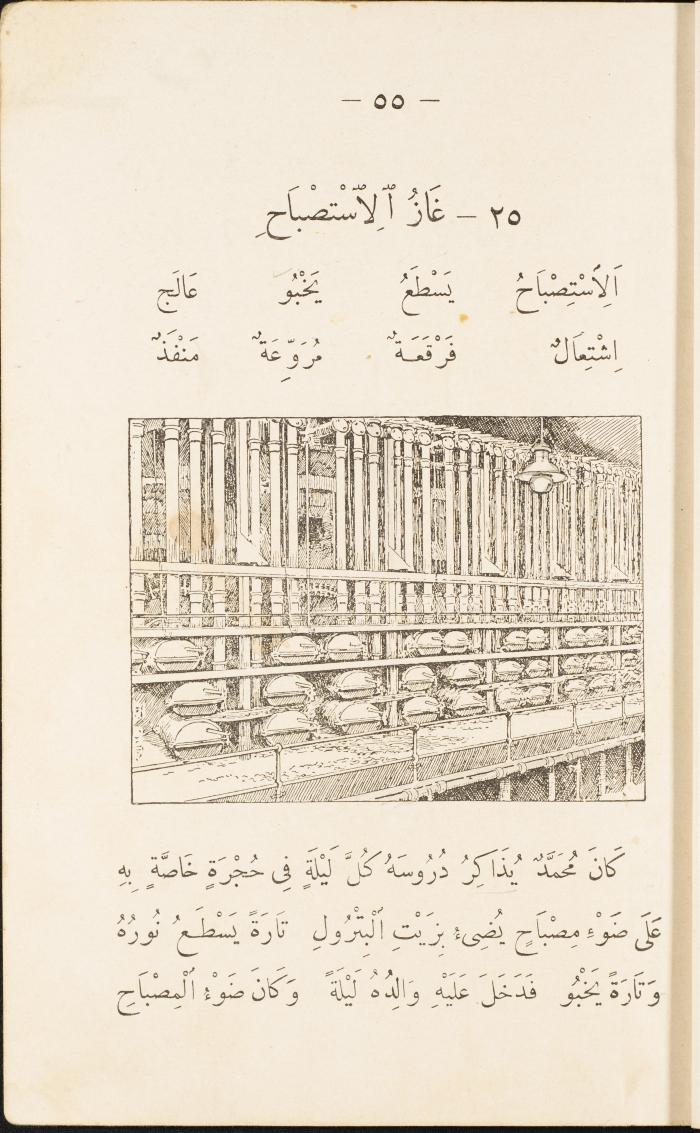 — ٥٥ —
٢٥ — غَازُ ٱلِٱسْتصْبَاحِ
اَلِٱسْتِصْبَاحُ يَسْطَعُ يَخْبُو عَالَج
اِشْتِعَالٌ فَرْقَعَةٌ مُرَوِّعَةٌ مَنْفَذٌ
كَانَ مُحَمَّدٌ يُذَاكِرُ دُرُوسَهُ كُلَّ لَيْلَةٍ فِى حُجْرَةٍ خَاصَّةٍ بِهِ
عَلَى ضَوْءِ مِصْبَاحٍ يُضِىءُ بِزَيْتِ ٱلْبِتْرُولِ تَارَةً يَسْطَعُ نُورُهُ
وَتَارَةً يَخْبُو فَدَخَلَ عَلَيْهِ وَالِدُهُ لَيْلَةً وَكَانَ ضَوْءُ ٱلْمِصْبَاحِ